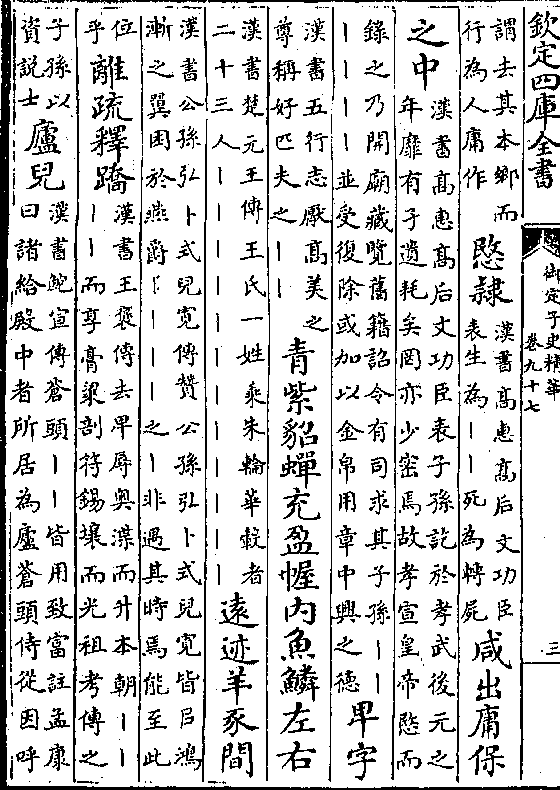 欽定四庫全書
御定子史精華
卷九十七
三
謂去其本鄉而
行為人庸作
愍隸
漢書高惠高后文功臣
表生為丨丨死為轉屍
咸出庸保
之中
漢書高惠高后文功臣表子孫訖於孝武後元之
年靡有孑遺耗矣罔亦少密焉故孝宣皇帝愍而
錄之乃開廟藏覽舊籍詔令有司求其子孫丨丨
丨丨丨丨並受復除或加以金帛用章中興之德
卑字
漢書五行志厭高美之
尊稱好匹夫之丨丨
青紫貂蟬充盈幄内魚鱗左右
漢書楚元王傳王氏一姓乘朱輪華轂者
二十三人丨丨丨丨丨丨丨丨丨丨
遠迹羊豕間
漢書公孫弘卜式兒寛傳贊公孫弘卜式兒寛皆㠯鴻
漸之翼困於燕爵丨丨丨丨之丨非遇其時焉能至此
位
乎
離疏釋蹻
漢書王襃傳去卑辱奧渫而升本朝丨丨
丨丨而享膏粱剖符錫壤而光祖考傳之
子孫以
資説士
廬兒
漢書鮑宣傳蒼頭丨丨皆用致富註孟康
曰諸給殿中者所居為廬蒼頭侍從因呼